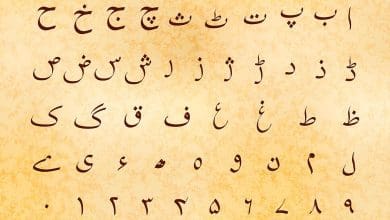 ا ب پ ت ٹ ث چ ج خ ح
ڈ ذ د ڑ ژ ز ر ش س ض ص
ظ ط غ ع ف ق گ ک
ل م ن و ہ ء ی ے
۰ ۱ ۲ ۳ ۴ ۵ ۶ ۷ ۸ ۹